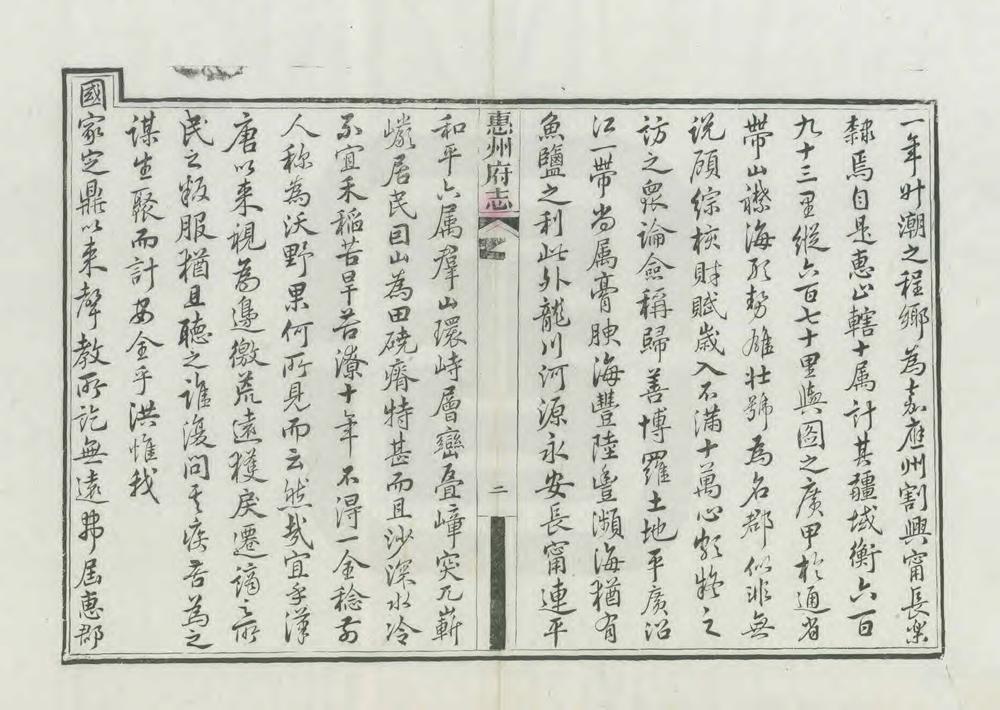 一年升潮之程鄉為嘉應州割興甯長樂
隸焉自是惠止轄十属計其疆域衡六百
九十三里縱六百七十里輿圖之廣甲於通省
帶山襟海形勢雄壯號為名郡似非無
說顧綜核財賦歲入不滿十萬心頗疑之
訪之眾論僉稱歸善博羅土地平廣沿
江一帶尚属膏腴海豐陸豐瀕海猶有
魚鹽之利此外龍川河源永安長甯連平
惠州府志
二
和平六属羣山環峙層巒疊嶂突兀嶄
巉居民因山為田磽瘠特甚而且沙深水冷
不宜禾稻苦旱苦潦十年不得一全稔前
人称為沃野果何所見而云然哉宜乎漢
唐以来視為邊徼荒遠獲戾遷謫之所
民之叛服猶且聽之誰復問其疾苦為之
謀生聚而計安全乎洪惟我
國家定鼎以来聲教所訖無遠弗屆惠郡